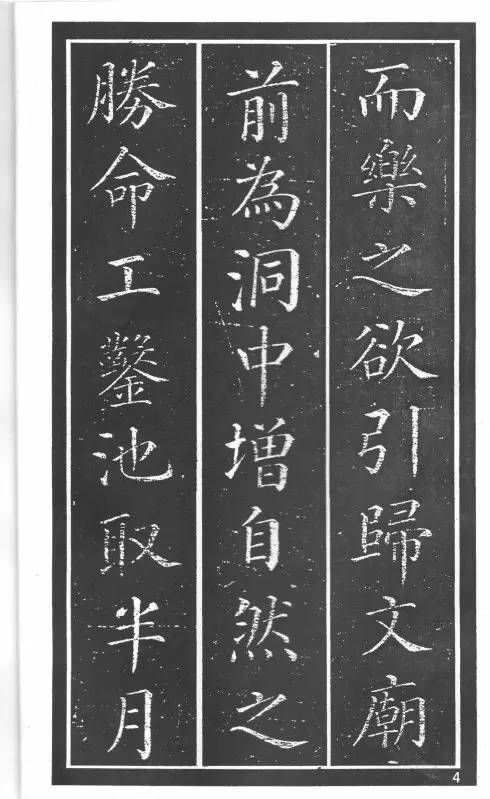 而樂之欲引歸文廟
前為洞中增自然之
勝命工鑿池取半月
4